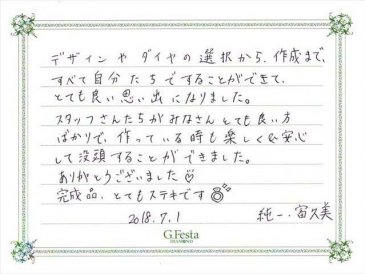 デザインや ダイヤの選択から、作成まで、
すべて自分たちですることができて、
とても良い思い出になりました。
スタッフさんたちがみなさんとても良い方
ばかりで、作っている時も楽しく安心
して没頭することができました。
ありがとうございました♡
完成品、とてもステキです
2018.7.1 純一・富久美
G.Festa
DIAMOND